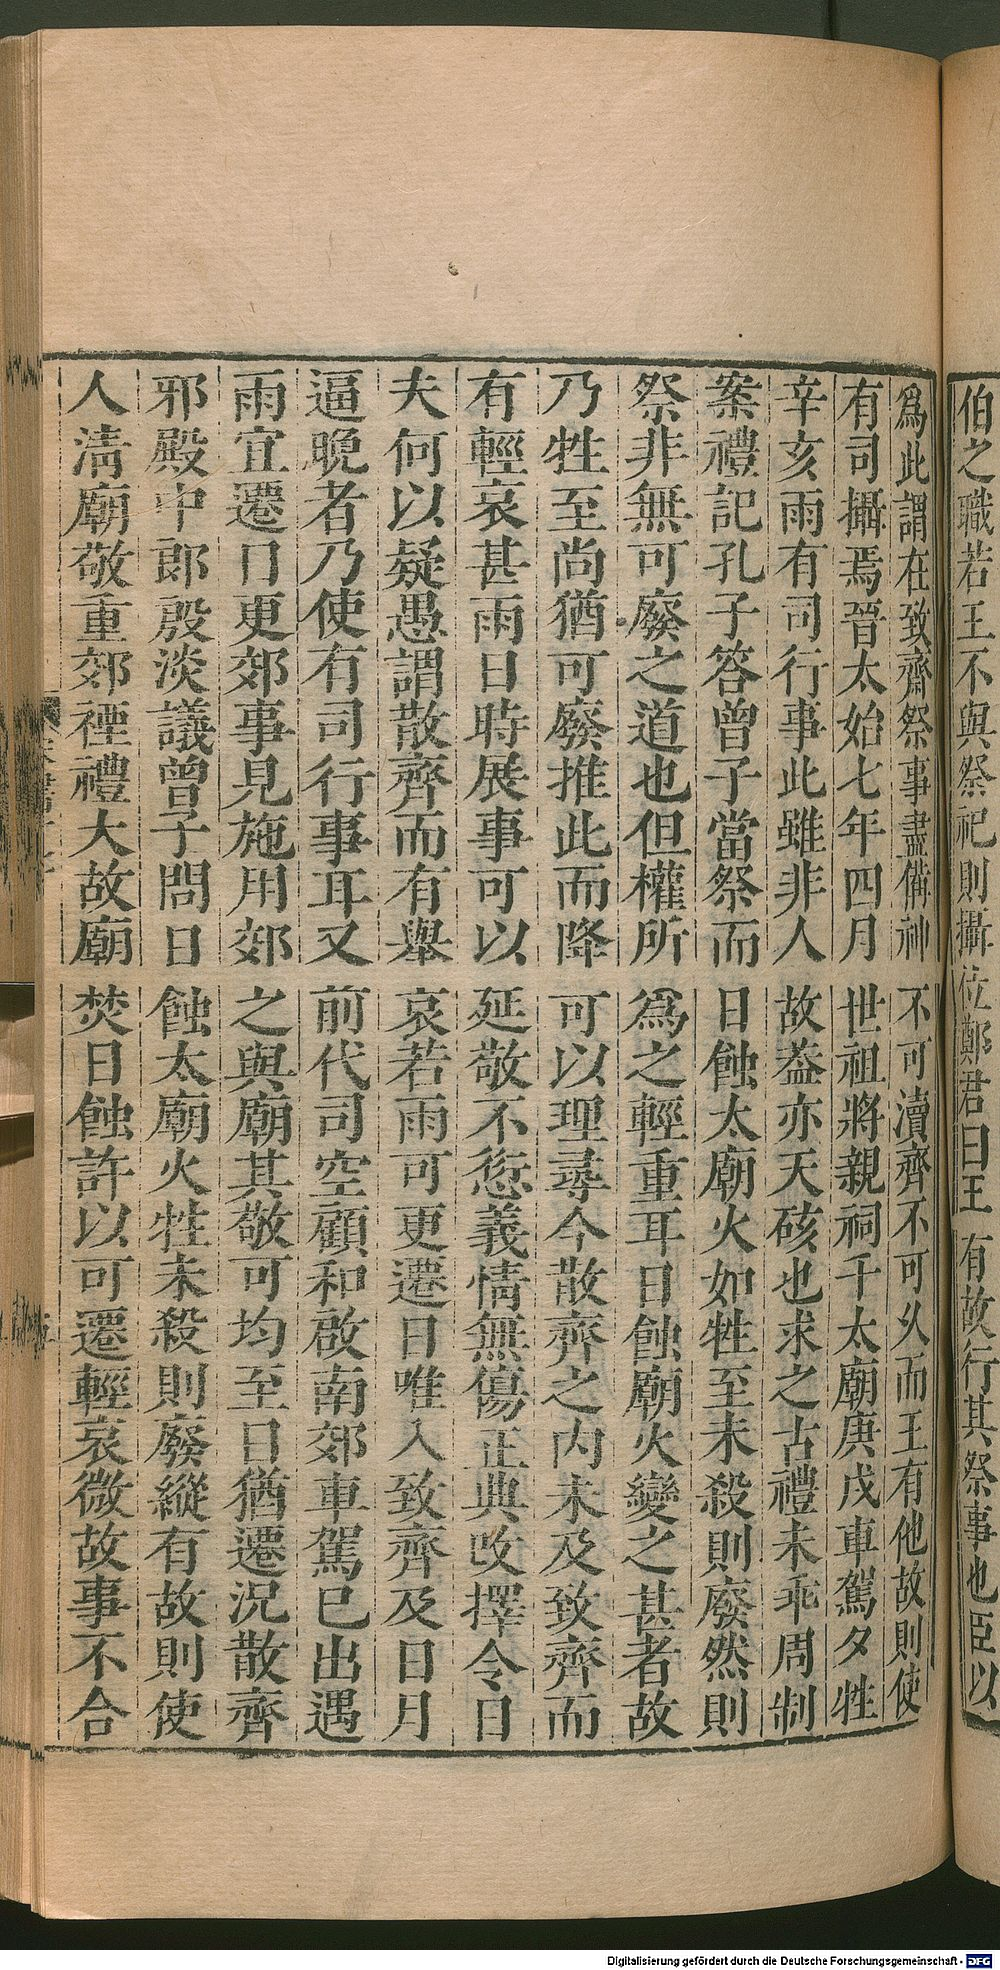 伯之職若王不與祭祀則攝位鄭君曰王有故行其祭事也臣以
爲此謂在致齋祭事盡備神不可瀆齊不可久而王有他故則使
有司攝焉晉太始七年四月世祖將親祠于太廟庚戌車駕夕牲
辛亥雨有司行事此雖非人故葢亦天硋也求之古禮未乖周制
案禮記孔子答曾子當祭而日蝕太廟火如牲至未殺則廢然則
祭非無可廢之道也但權所爲之輕重耳日蝕廟火變之甚者故
乃牲至尚猶可廢推此而降可以理尋今散齊之內未及致齊而
有輕哀甚雨日時展事可以延敬不愆義情無傷正典改擇令日
夫何以疑愚謂散齊而有舉哀若雨可更遷日唯入致齊及日月
逼晚者乃使有司行事耳又前代司空顧和啟南郊車駕巳出遇
雨宜遷日更郊事見施用郊之與廟其敬可均至日猶遷況散齊
邪殿中郎殷淡議曾子問日蝕太廟火牲未殺則廢縱有故則使
人清廟敬重郊禋禮大故廟焚日蝕許以可遷輕哀微故事不合
Digitalisierung gefördert durch die Deutsche Forschungsgemeinschaft - DFG